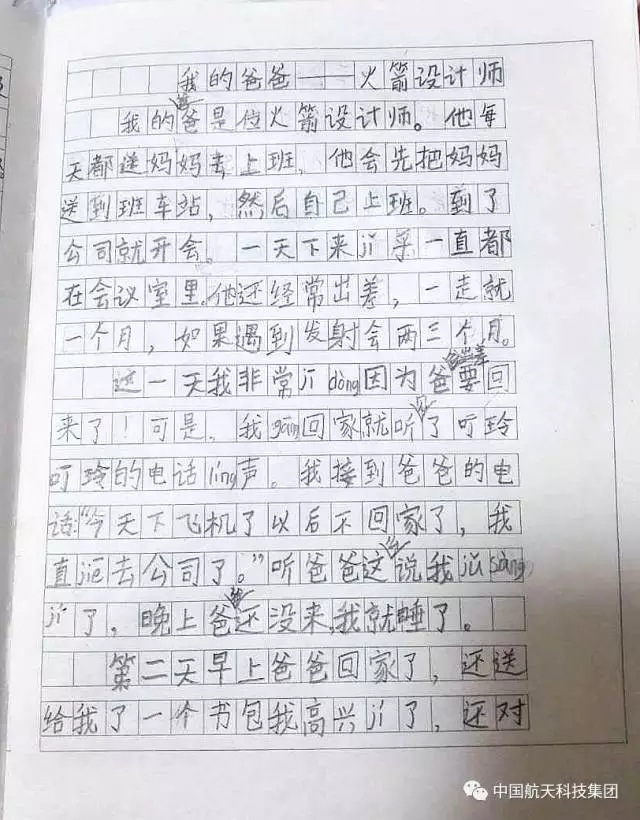 我的爸爸——火箭设计师
我的爸爸是位火箭设计师。他每
天都送妈妈去上班，他会先把妈妈
送到班车站，然后自己上班。到了
公司就开会。一天下来jī乎一直都
在会议室里。他还经常出差，一走就
一个月，如果遇到发射会两三个月。
这一天我非常jī dòng因为爸爸出差要回
来了！可是，我gāng回家就听见了叮玲
叮玲的电话líng声。我接到爸爸的电
话：“今天下飞机了以后不回家了，我
直jiē去公司了。”听爸爸这么说我jǔ sàng
jí了，晚上爸爸还没来，我就睡了。
第二天早上爸爸回家了，还送
给我了一个书包我高兴jí了，还对
中国航天科技集团